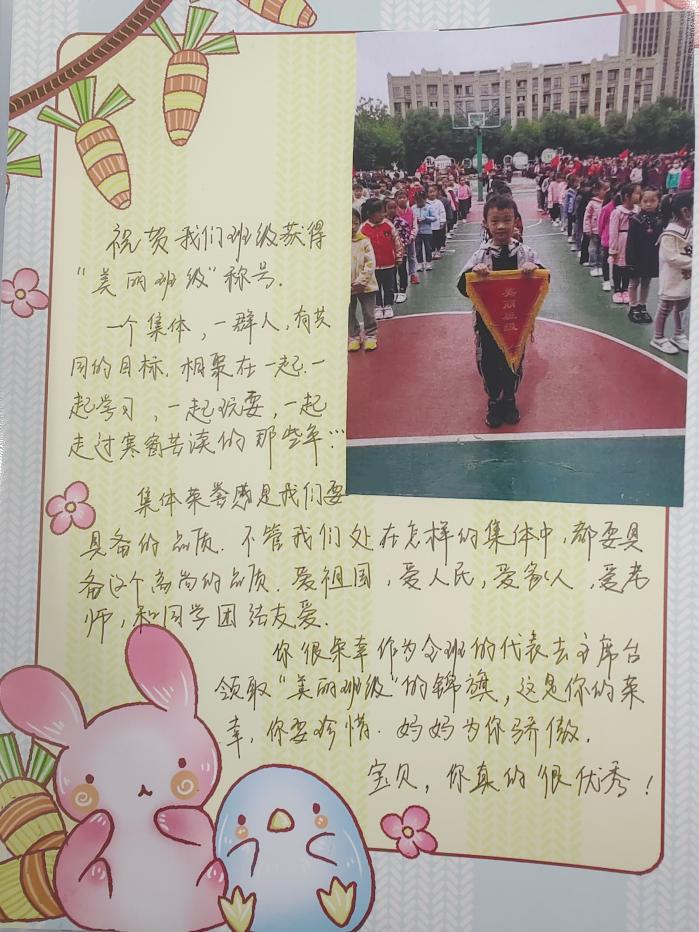 祝贺我们班级获得
“美丽班级”称号.
一个集体，一群人，有共
同的目标.相聚在一起.一
起学习，一起玩耍，一起
走过寒窗苦读的那些年…
集体荣誉感是我们要
具备的品质.不管我们处在怎样的集体中，都要具
备这个高尚的品质.爱祖国，爱人民，爱家人，爱老
师，和同学团结友爱.
你很荣幸作为全班的代表去主席台
领取“美丽班级”的锦旗，这是你的荣
幸，你要珍惜.妈妈为你骄傲.
宝贝，你真的很优秀！
美丽班级